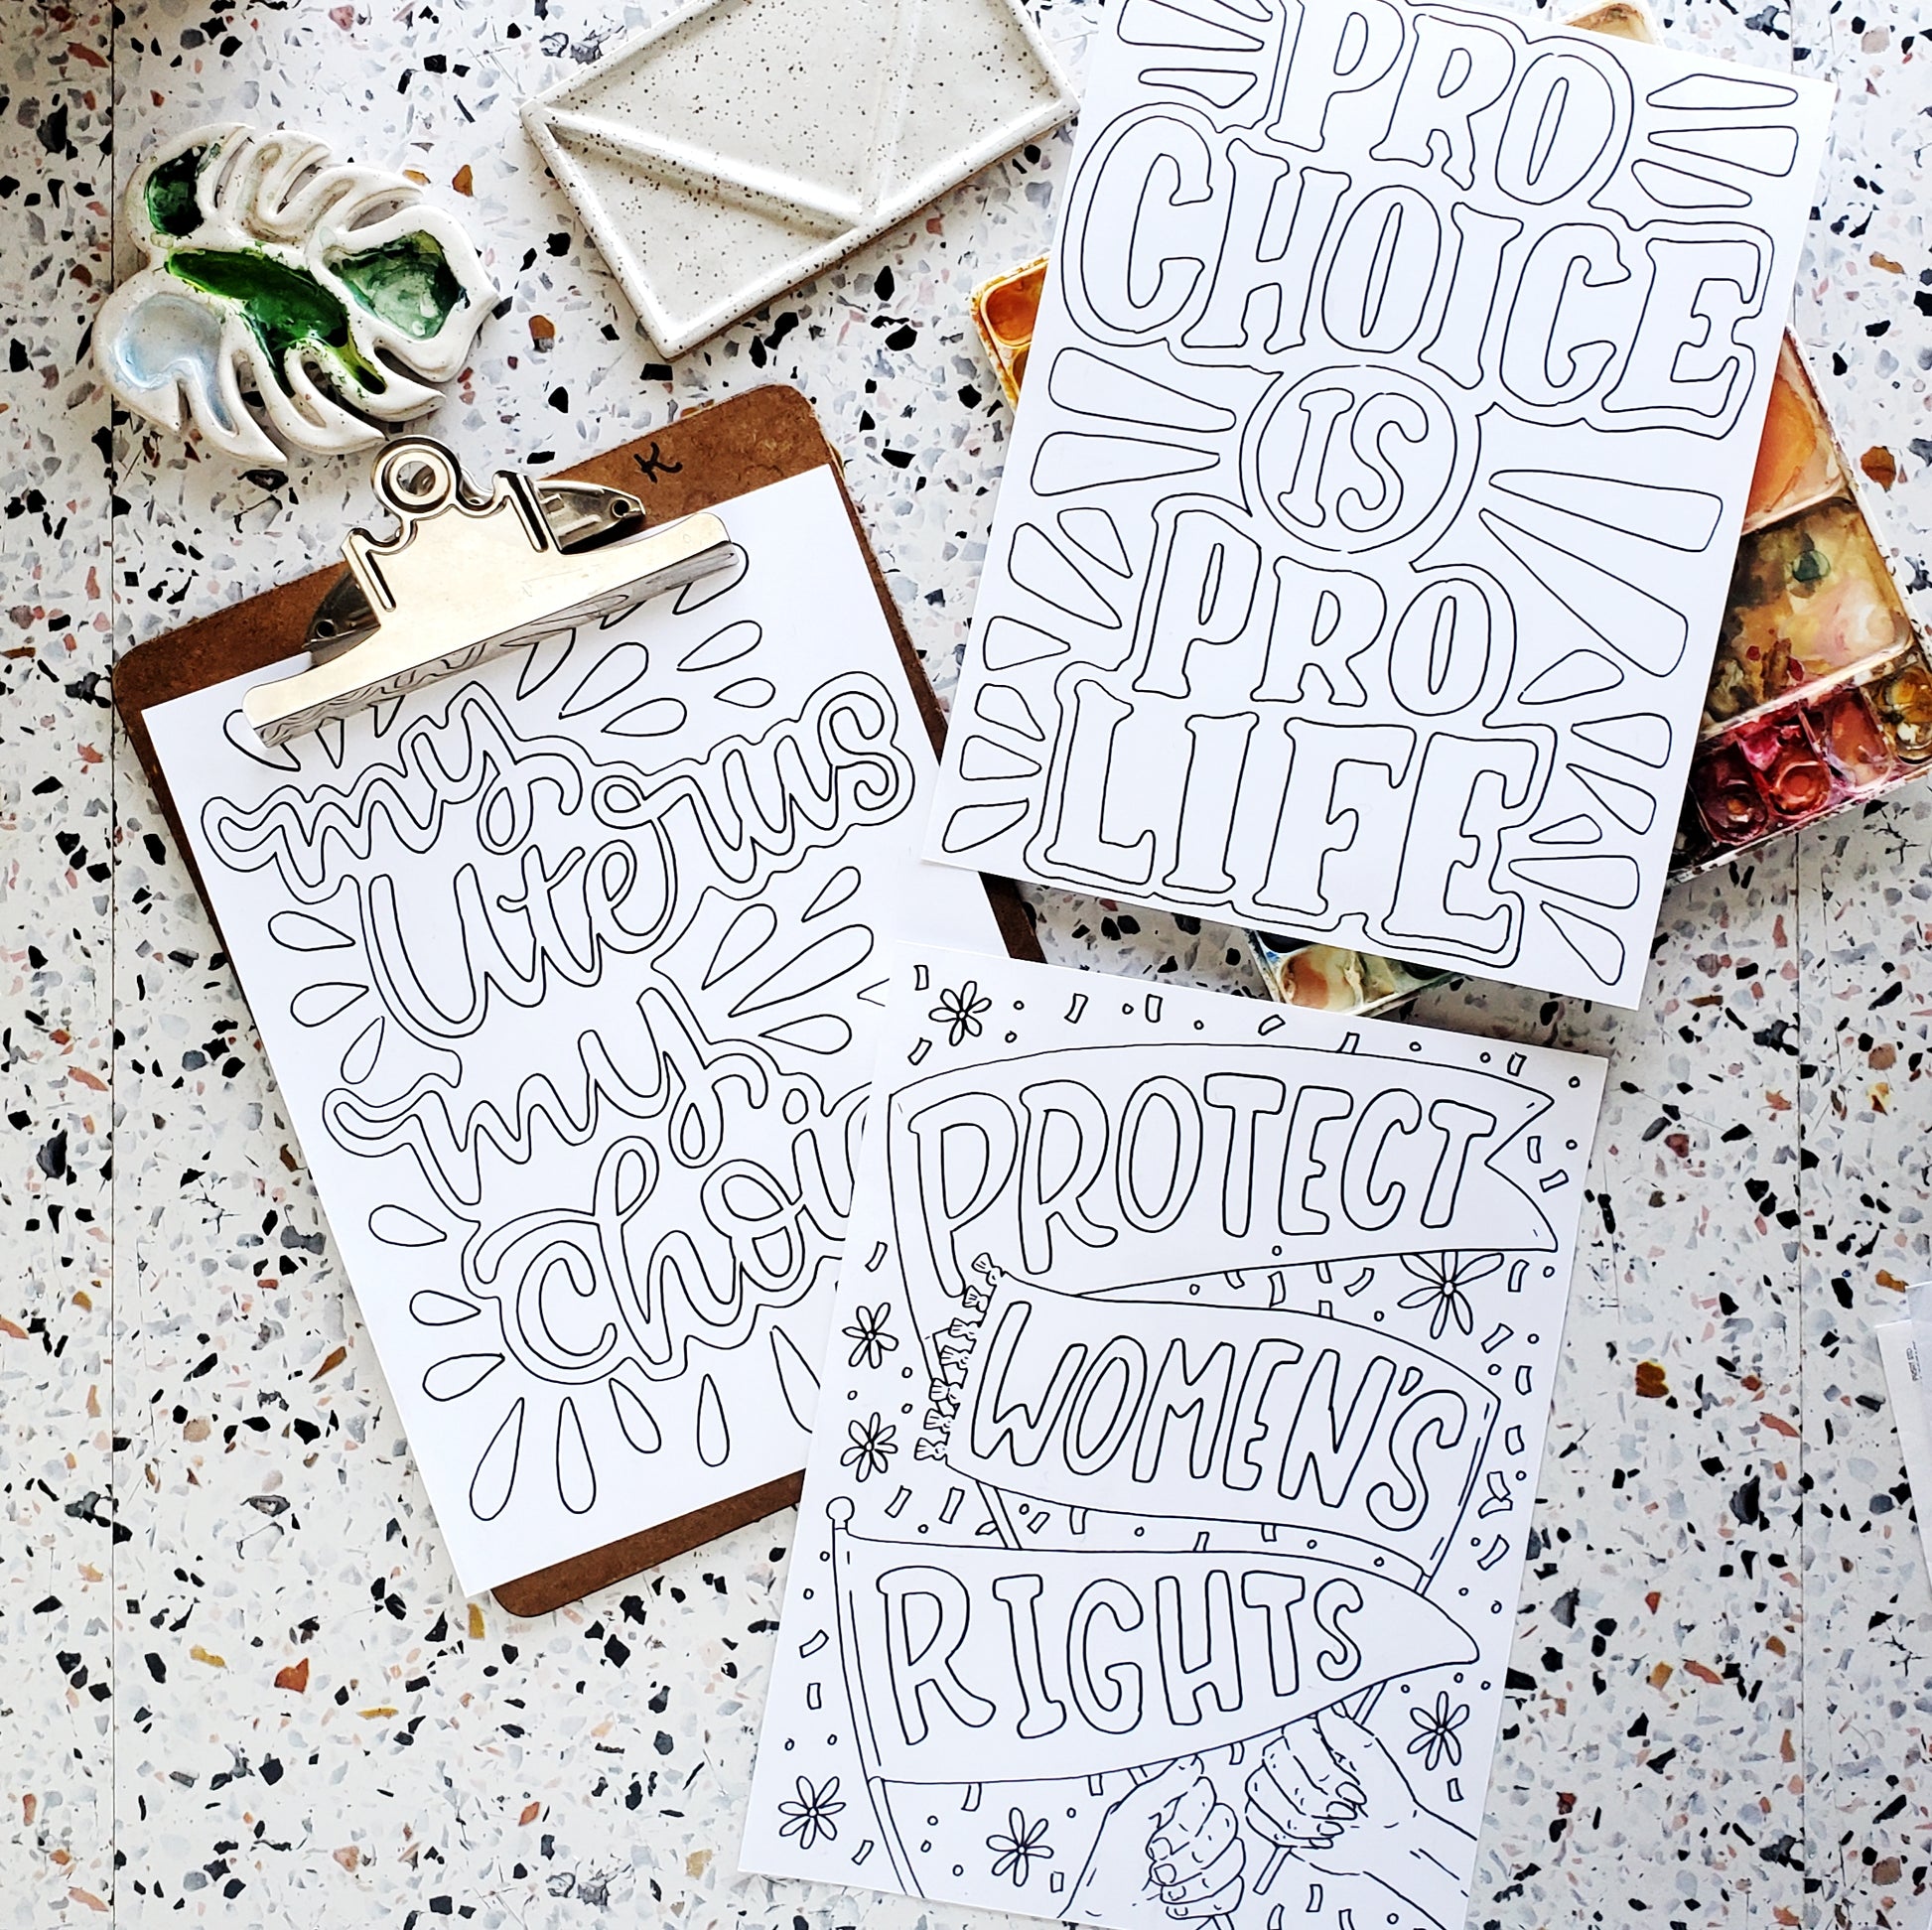 K
my
uterus
my
choi
PRO
CHOICE
IS
PRO
LIFE
PROTECT
WOMEN'S
RIGHTS